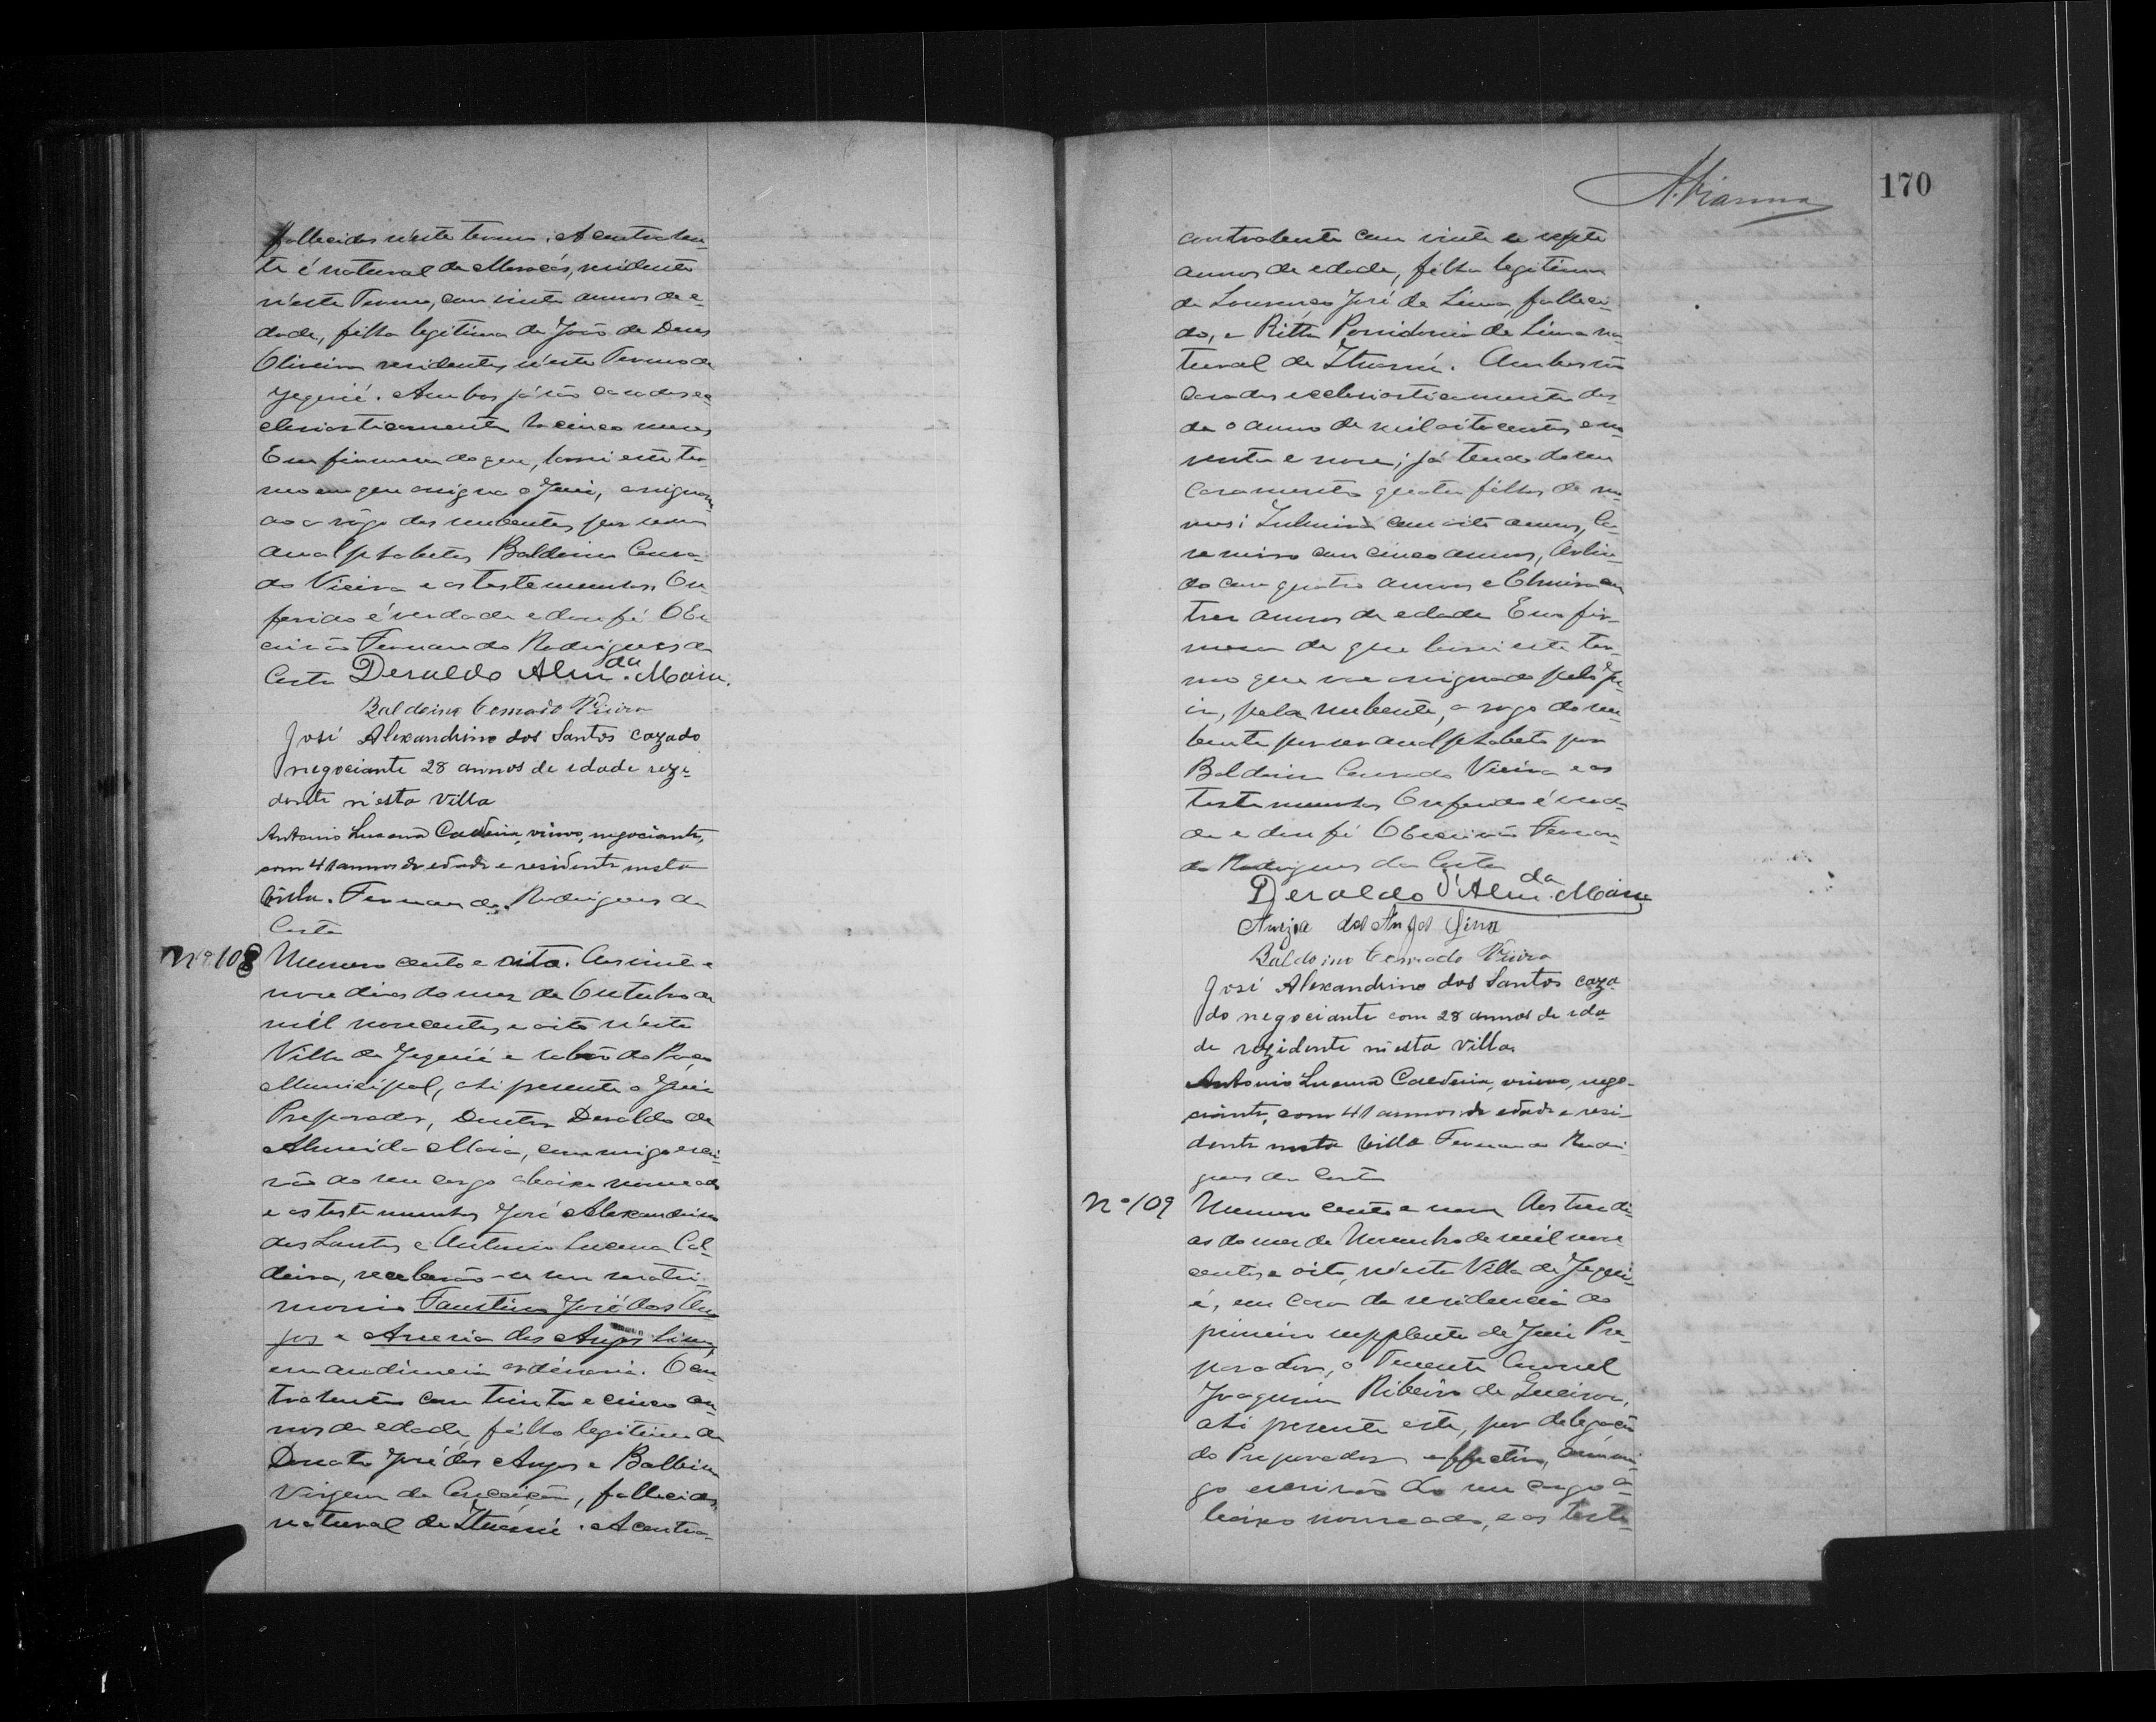 fallecidos n'este termo. A contrahen-
te é natural de Maracás, residente
n'este Termo, com vinte annos de e-
dade, filha legitima de João de Deus
Oliveira residentes n'este Termo de
Jequié. Ambos já são casados ec-
clesiasticamente ha cinco mezes
Em firmeza do que, lavrei este ter-
mo em que assigna o Juiz, assignan-
do a rogo dos nubentes por serem
analphabetos Baldoino Conra-
do Vieira e as testemunhas. O re-
ferido é verdade e dou fé O Es-
crivão Fernando Rodrigues da
Costa Deraldo Alm.da Maia.
Baldoino Conrado Vieira
José Alexandrino dos Santos cazado
negociante 28 annos de idade rezi-
dente n'esta Villa
Antonio Lucena Caldeira, viuvo, negociante,
com 41 annos de edade e residente nesta
Villa. Fernando Rodrigues da
Costa
Nº 108 Numero cento e oito. Aos vinte e
nove dias do mez de Outubro de
mil novecentos e oito n'esta
Villa de Jequié e salão do Paço
Municipal, ahi presente o Juiz
Preparador, Doutor Deraldo de
Almeida Maia, commigo escri-
vão do seu cargo abaixo nomeado
e as testemunhas José Alexandrino
dos Santos e Antonio Lucena Cal-
deira, receberão-se em matri-
monio Faustino José dos An-
jos e Anesia dos Anjos Lima
em audiencia ordinaria. O con-
trahente com trinta e cinco an-
nos de edade, filho legitimo de
Donato José dos Anjos e Balbina
Virgem da Conceição, fallecidos,
natural de Ituassú. A contra-
A. Vianna 170
contrahente com vinte e septe
annos de edade, filha legitima
de Lourenço José de Lima, falleci-
do, e Ritta Possidonia de Lima na-
tural de Ituassú. Ambos são
casados ecclesiasticamente des-
de o anno de mil oitocentos e no-
venta e nove; já tendo do seu
casamento quatro filhos de no-
mes: com oito annos,
com cinco annos, Arlin-
do com quatro annos e Elmira com
tres annos de edade Em fir-
meza do que lavrei este ter-
mo que vae assignado pelo Ju-
iz, pela nubente, a rogo do nu-
bente por ser analphabeto por
Baldoino Conrado Vieira e as
testemunhas O referido é verda-
de e dou fé O Escrivão Fernan-
do Rodrigues da Costa
Deraldo d'Alm.da Maia
Anizia dos Anjos Lima
Baldoino Conrado Vieira
José Alexandrino dos Santos caza-
do negociante com 28 annos de ida-
de rezidente n'esta Villa
Antonio Lucena Caldeira, viuvo, nego-
ciante, com 41 annos de edade e resi-
dente nesta Villa Fernando Rodri-
gues da Costa
Nº 109 Numero cento e nove Aos tres di-
as do mez de Novembro de mil nove-
centos e oito, n'esta Villa de Jequi-
é, em casa da residencia do
primeiro supplente de Juiz Pre-
parador, o Tenente Coronel
Joaquim Ribeiro de
ahi presente este, por delegação
do Preparador effectivo, commi-
go escrivão do seu cargo a-
baixo nomeado, e as teste-